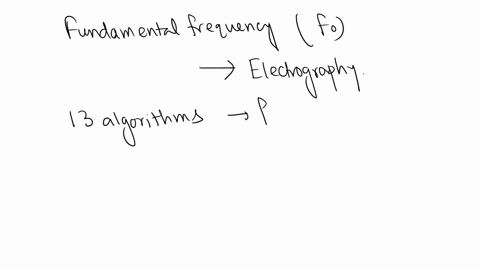 Fundamental frequency (Fo)
→ Electrography.
13 algorithms → P